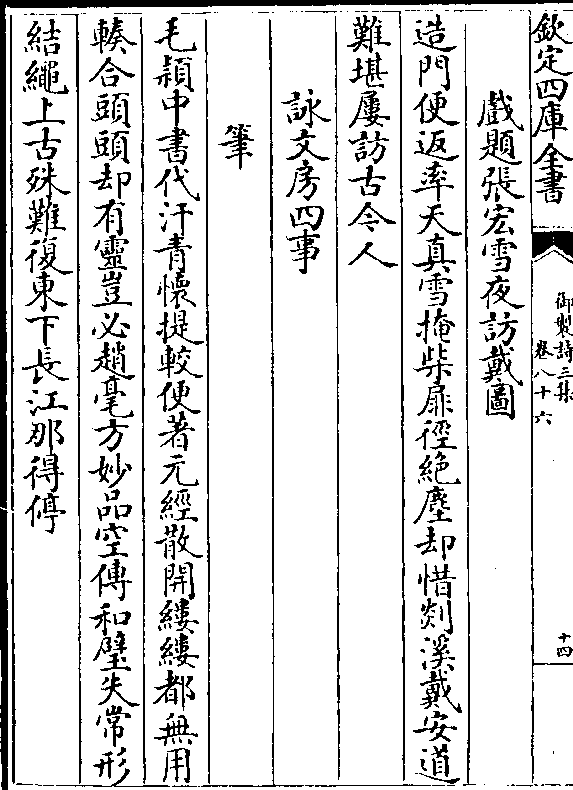 欽定四庫全書
御製詩三集
卷八十六
十四
戲題張宏雪夜訪戴圖
造門便返率天真雪掩柴扉徑絶塵却惜剡溪戴安道
難堪屢訪古今人
詠文房四事
筆
毛頴中書代汗青懷提較便著元經散開縷縷都無用
輳合頭頭却有靈豈必趙毫方妙品空傳和璧失常形
結繩上古殊難復東下長江那得停